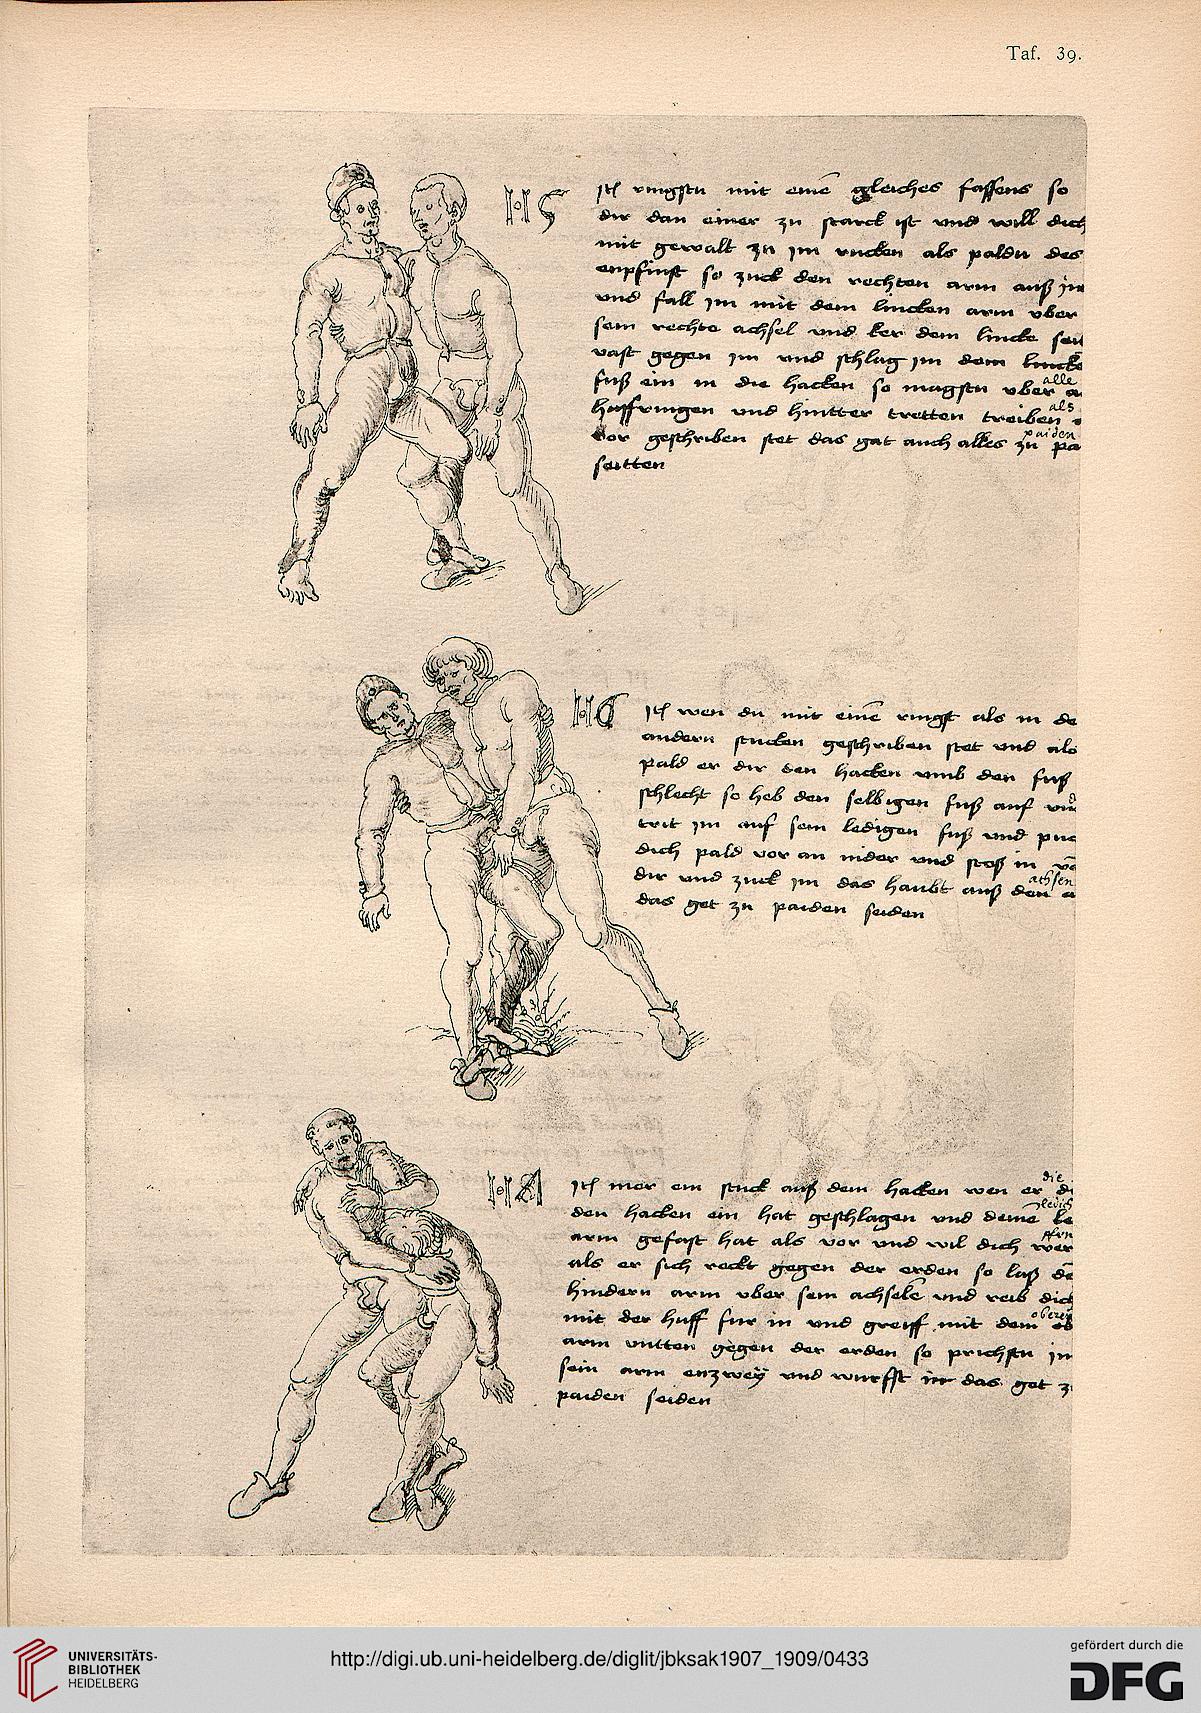 Taf. 39.
H 5
Itꝭ ringstu mit einē gleiches fassens so
dir dan einer zu starck ist und will dich
mit gewalt zu im rucken als paldu des
enpfinst so zuck den rechten arm auß im
und fall im mit dem lincken arm uber
sein rechte achsel und ker dem lincke seit
vast gegen im und schlag im dem lincke
fuß ein in die hacken so magstu uber alle
huffringen und hintter tretten treiben als
vor geschriben stet das gat auch alles zu paiden
seitten
H 6
Itꝭ wen du mit einē ringst als in de
andern stucken geschriben stet und als
pald er dir den hacken umb den fuß
schlecht so heb den selbigen fuß auf und
trit im auf sein ledigen fuß und puc
dich pald vor an nider und stoß in vō
dir und zuck im das haubt auß den achsen
das get zu paiden seiden
H Λ
Itꝭ mer ein stuck auß dem hacken wen er die
den hacken ein hat geschlagen und deinē ledig
arm gefast hat als vor und wil dich
als er sich reckt gegen der erden so laß dē
hindern arm uber sein achselē und reib dich
mit der huff fur in und greiff mit dem oberen
arm untten gegen der erden so prichstu im
sein arm enzwey und wurfst in das get z
paiden seiden
UNIVERSITÄTS-
BIBLIOTHEK
HEIDELBERG
http://digi.ub.uni-heidelberg.de/diglit/jbksak1907_1909/0433
gefördert durch die
DFG